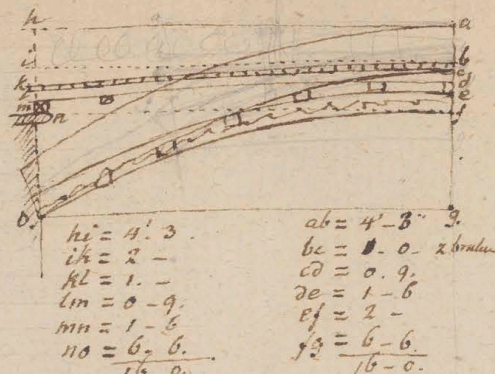 h
a
i
b
k
c
l
d
m
e
n
f
o
g.
hi = 4'. 3.
ik = 2 -
kl = 1. -
lm = 0 - 9.
mn = 1 - 6
no = 6 - 6.
16 0.
ab = 4' - 3"
bc = 1. 0.
cd = 0. 9.
de = 1 - 6
ef = 2 -
fg = 6 - 6
16 - 0.